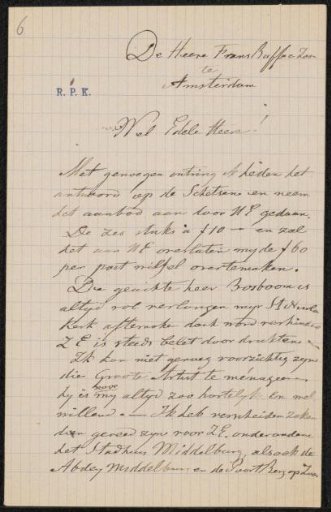 6
De Heere Frans Buffa & Zon
te
Amsterdam
R. P. K.
Wel Edele Heer!
Met genoegen ontving ik heden het
antwoord op de Schetsen en neem
het aanbod aan door UE gedaan.
De zes stuks à ƒ10 — en zal
het aan UE overlaten mij de ƒ60
per post wissel overtemaken.
De geachte heer Bosboom is
altijd vol verlangen mijn St Nicola
Kerk aftemaken dank
ZE is steeds belet door
Ik kan niet genoeg voorzichtig zijn
die Groote Artist te ménageeren
hij is voor mij altijd zoo hartelijk en wel
willend — Ik heb verscheiden zaken
die goed zijn voor ZE, onder anderen
het Stadhuis Middelburg, alsook de
Abdey Middelburg en de Poort Berg op Zoom